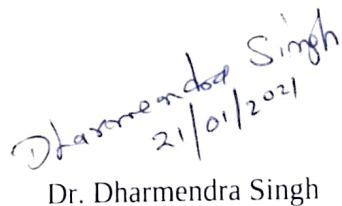 Dharmendra Singh
21/01/2021
Dr. Dharmendra Singh